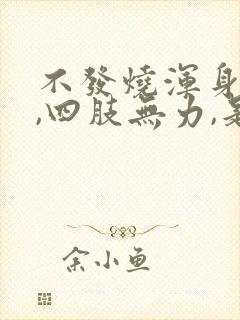 不發燒渾身
,四肢無力,
余小鱼